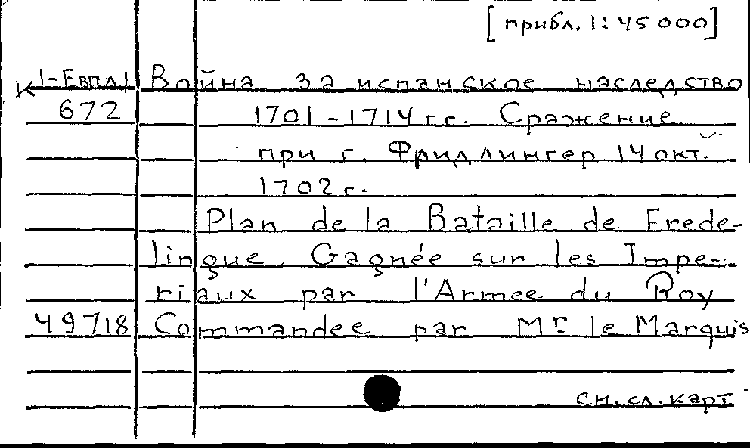 [прибл. 1:45 000]
К 1-Евпл1 Война за испанское наследство
672 1701-1714 г.г. Сражение
при г. Фридлингер 14 окт.
1702 г.
Plan de la Bataille de Frede-
lingue. Gagnée sur les Impe-
riaux par l'Armee du Roy
49718 Commandee par Mr le Marquis
см. сл. карт